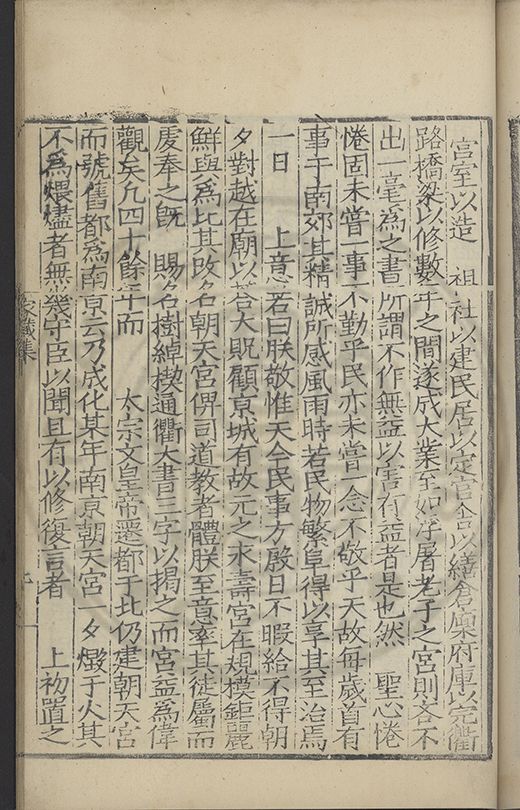 宮室以造　祖社以建民居以定官舍以繕倉廩府庫以完衢
路橋梁以修數年之間遂成大業至如浮屠老子之宮則吝不
出一毫為之書所謂不作無益以害有益者是也然　聖心惓
惓固未嘗一事不勤乎民亦未嘗一念不敬乎天故每歲首有
事于南郊其精誠所感風雨時若民物繁阜得以享其至治焉
一日　上意若曰朕敬惟天命民事方殷日不暇給不得朝
夕對越在廟以荅大貺顧京城有故元之永壽宮在規模鉅麗
鮮與為比其改名朝天宮俾司道教者體朕至意率其徒屬而
虔奉之既　賜名樹綽楔通衢大書三字以揭之而宮益為偉
觀矣凡四十餘年而　太宗文皇帝遷都于北仍建朝天宮
而號舊都為南京云乃成化某年南京朝天宮一夕燬于火其
不為煨燼者無幾守臣以聞且有以修復言者　上初置之
家藏集